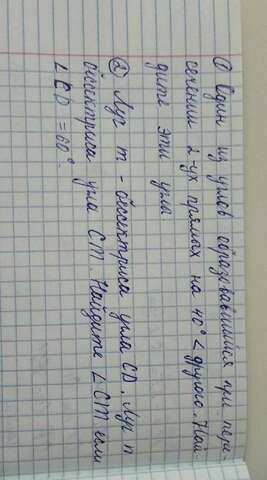 ① Один из углов образвавшийся при пере-
сечении 2-ух прямых на 40° < другого. Най
дите эти углы
② Луч m - биссектриса угла CD. Луч n
биссектриса угла CM. Найдите ∠CM если
∠CD = 60°.